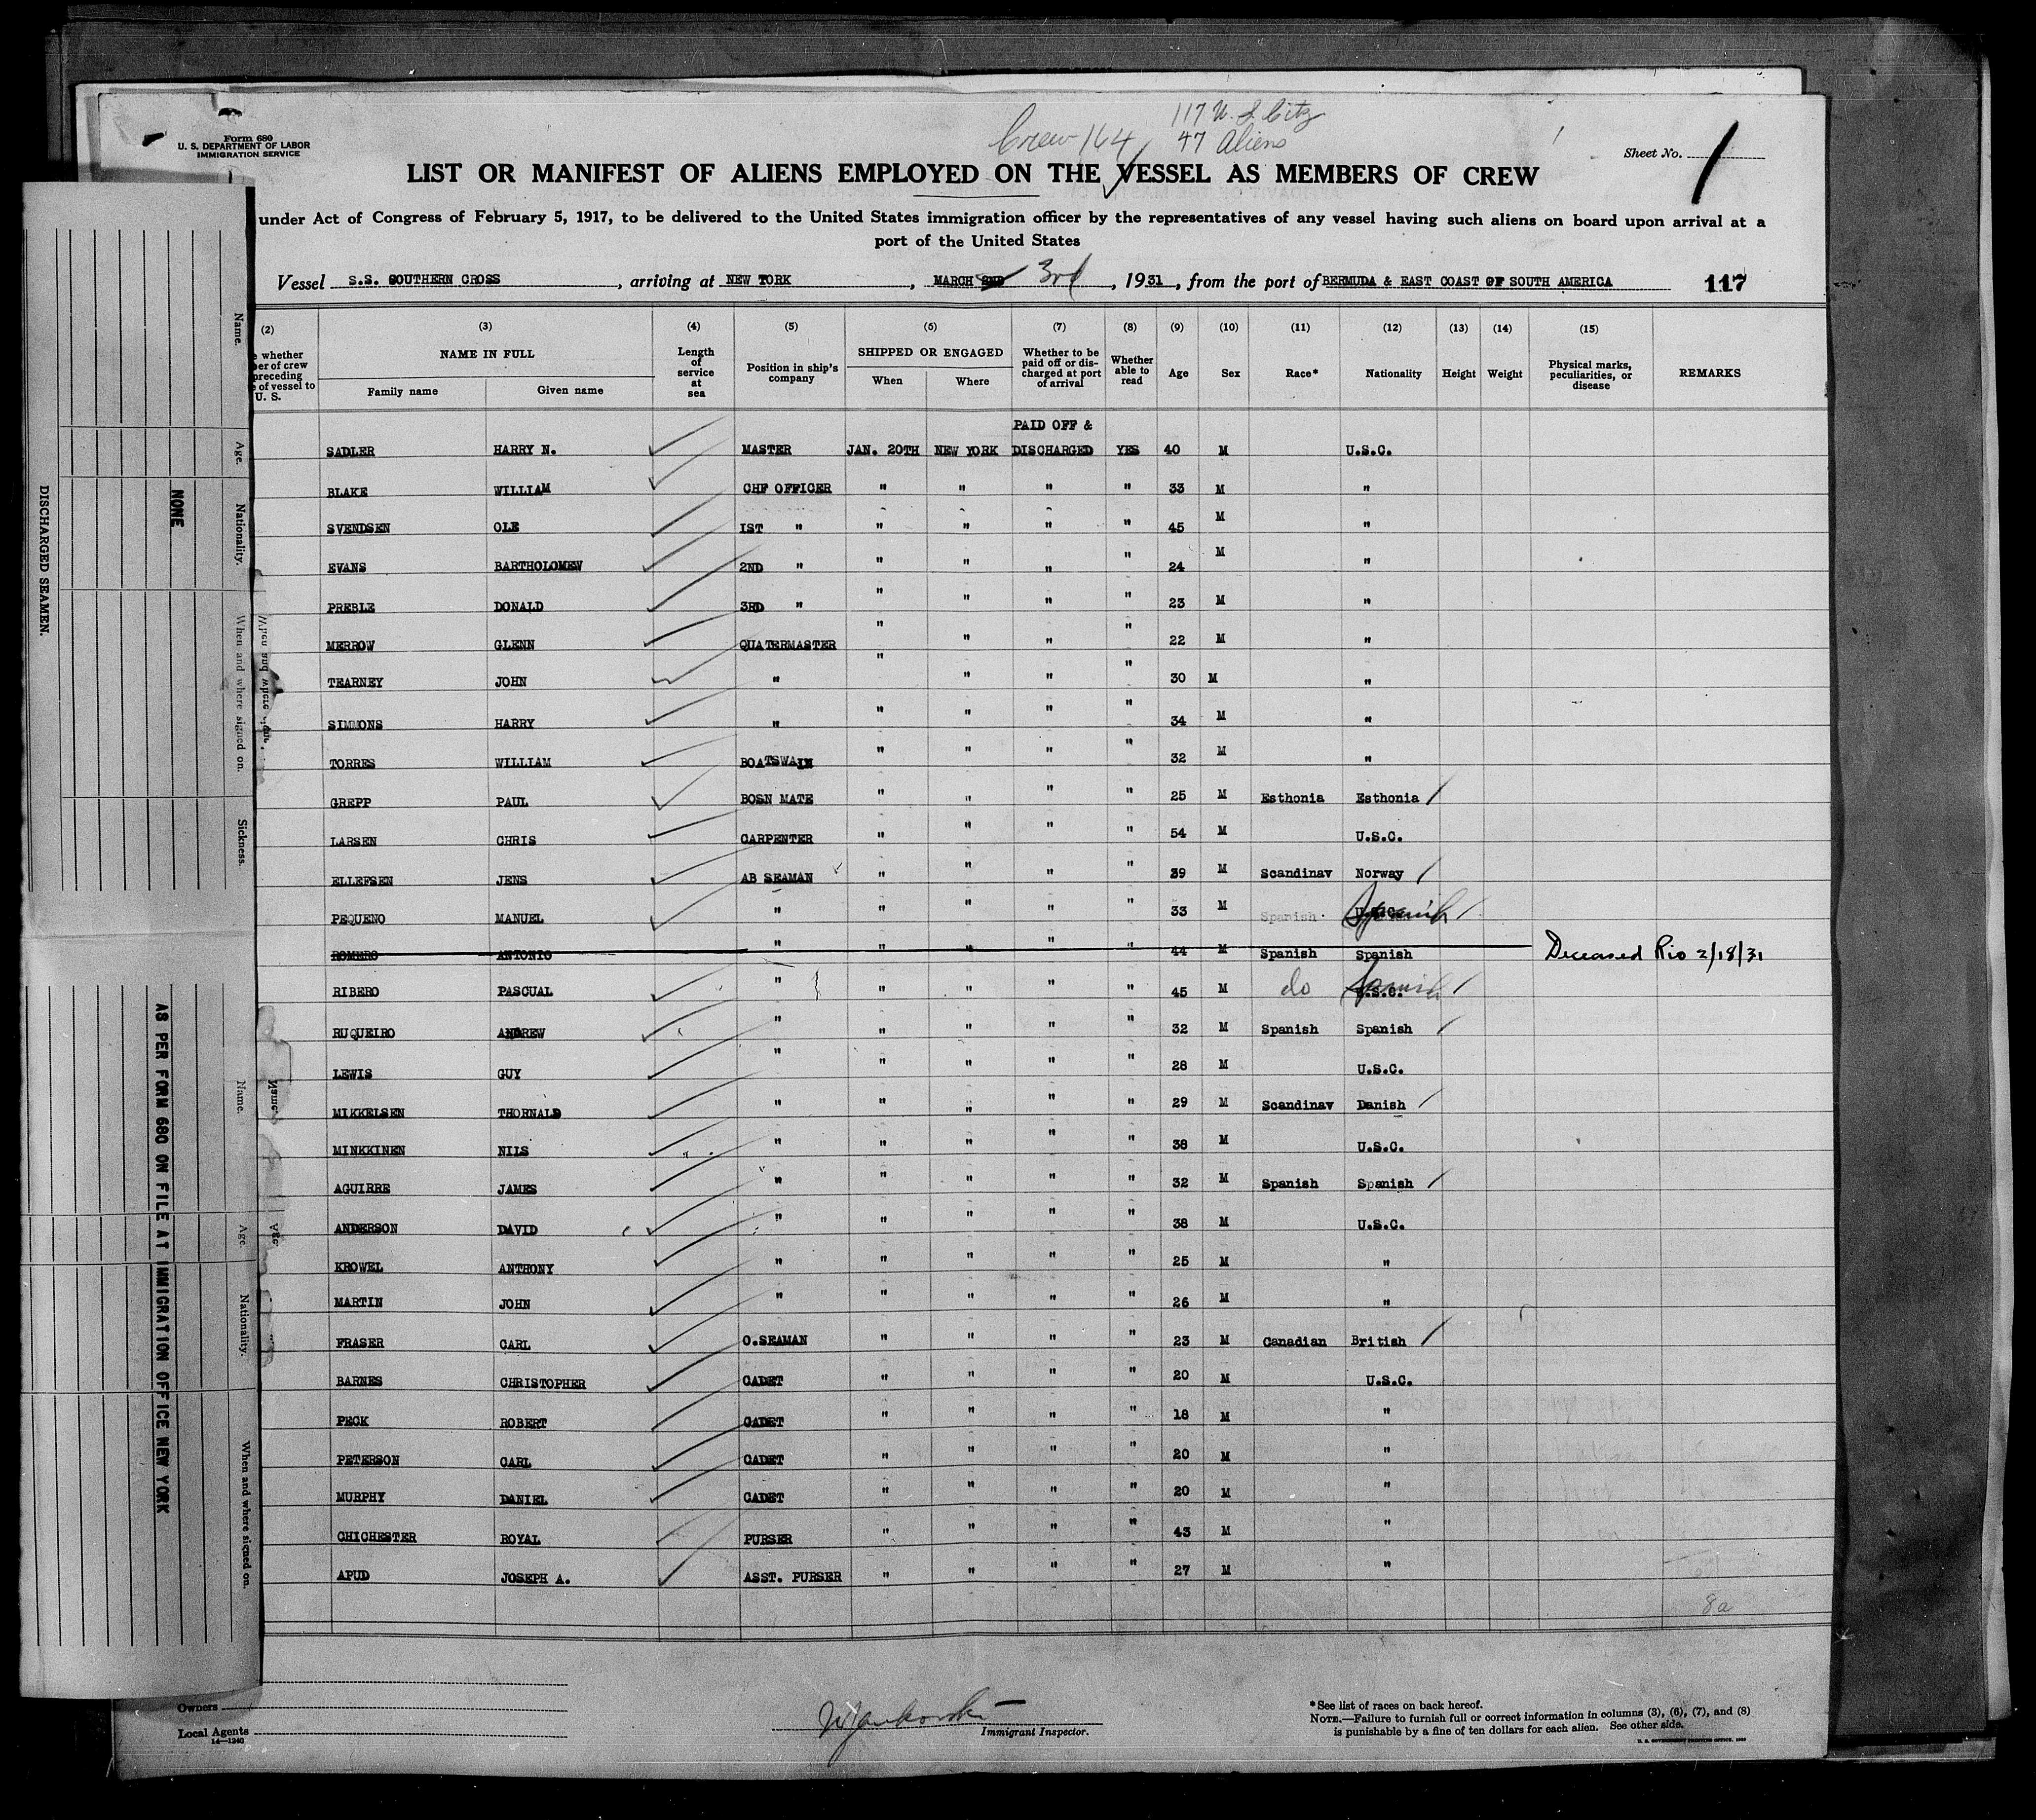 Crew 164
117 U. S. Citz
47 Aliens
Form 680
U. S. DEPARTMENT OF LABOR
IMMIGRATION SERVICE
Sheet No. 1
LIST OR MANIFEST OF ALIENS EMPLOYED ON THE VESSEL AS MEMBERS OF CREW
under Act of Congress of February 5, 1917, to be delivered to the United States immigration officer by the representatives of any vessel having such aliens on board upon arrival at a
port of the United States
Vessel S.S. SOUTHERN CROSS, arriving at NEW YORK, MARCH 2ND 3rd, 1931, from the port of BERMUDA & EAST COAST OF SOUTH AMERICA 117
(2) (3) (4) (5) (6) (7) (8) (9) (10) (11) (12) (13) (14) (15)
whether
of crew
preceding
of vessel to
U. S.
NAME IN FULL
Family name Given name
Length
of
service
at
sea
Position in ship's
company
SHIPPED OR ENGAGED
When Where
Whether to be
paid off or dis-
charged at port
of arrival
Whether
able to
read
Age Sex Race* Nationality Height Weight
Physical marks,
peculiarities, or
disease
REMARKS
PAID OFF &
SADLER HARRY N. MASTER JAN. 20TH NEW YORK DISCHARGED YES 40 M U.S.C.
BLAKE WILLIAM CHF OFFICER " " " " 33 M "
SVENDSEN OLE 1ST " " " " " 45 M "
EVANS BARTHOLOMEW 2ND " " " " " 24 M "
PREBLE DONALD 3RD " " " " " 23 M "
MERROW GLENN QUATERMASTER " " " " 22 M "
TEARNEY JOHN " " " " " 30 M "
SIMMONS HARRY " " " " " 34 M "
TORRES WILLIAM BOATSWAIN " " " " 32 M "
GREPP PAUL BOSN MATE " " " " 25 M Esthonia Esthonia
LARSEN CHRIS CARPENTER " " " " 54 M U.S.C.
ELLEFSEN JENS AB SEAMAN " " " " 39 M Scandinav Norway
PEQUENO MANUEL " " " " " 33 M Spanish U.S.C. Spanish
ROMERO ANTONIO " " " " " 44 M Spanish Spanish Deceased Rio 2/18/31
RIBERO PASCUAL " " " " " 45 M do U.S.C. Spanish
RUQUEIRO ANDREW " " " " " 32 M Spanish Spanish
LEWIS GUY " " " " " 28 M U.S.C.
MIKKELSEN THORNALD " " " " " 29 M Scandinav Danish
MINKKINEN NILS " " " " " 38 M U.S.C.
AGUIRRE JAMES " " " " " 32 M Spanish Spanish
ANDERSON DAVID " " " " " 38 M U.S.C.
KROWEL ANTHONY " " " " " 25 M "
MARTIN JOHN " " " " " 26 M "
FRASER CARL O.SEAMAN " " " " 23 M Canadian British
BARNES CHRISTOPHER CADET " " " " 20 M U.S.C.
PECK ROBERT CADET " " " " 18 M "
PETERSON CARL CADET " " " " 20 M "
MURPHY DANIEL CADET " " " " 20 M "
CHICHESTER ROYAL PURSER " " " " 43 M "
APUD JOSEPH A. ASST. PURSER " " " " 27 M "
8a
Owners
Local Agents
14—1240
Immigrant Inspector.
*See list of races on back hereof.
NOTE.—Failure to furnish full or correct information in columns (3), (6), (7), and (8)
is punishable by a fine of ten dollars for each alien. See other side.
U. S. GOVERNMENT PRINTING OFFICE
DISCHARGED SEAMEN.
NONE
Name.
Age.
Nationality.
When and where signed on.
Sickness.
AS PER FORM 680 ON FILE AT IMMIGRATION OFFICE NEW YORK
Name.
Age.
Nationality.
When and where signed on.